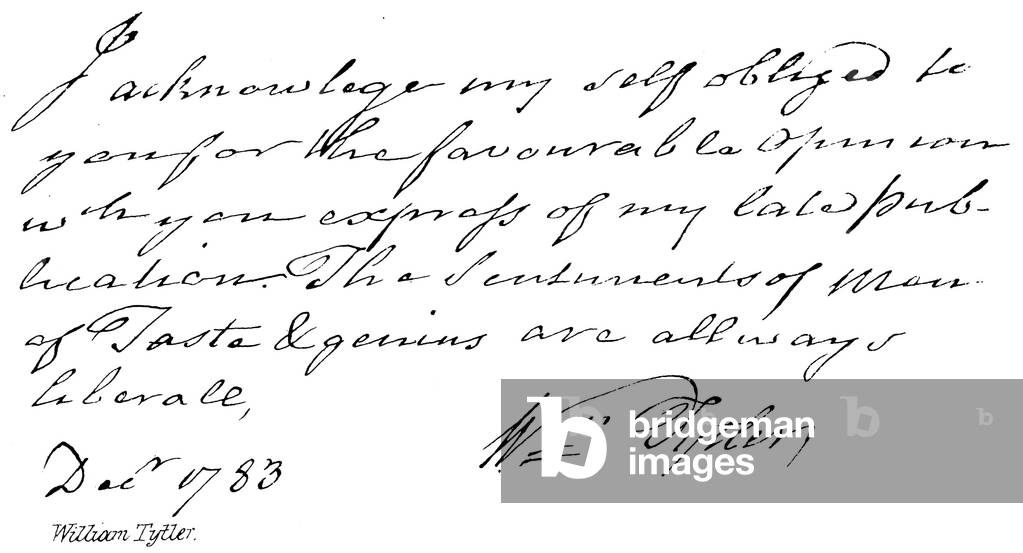 I acknowlege my self obliged to
you for the favourable opinion
wch you express of my late pub-
lication. The Sentiments of Men
of Taste & genius are allways
liberall,
Wm Tytler,
Decr 1783
William Tytler.
b bridgeman images
b
b
b